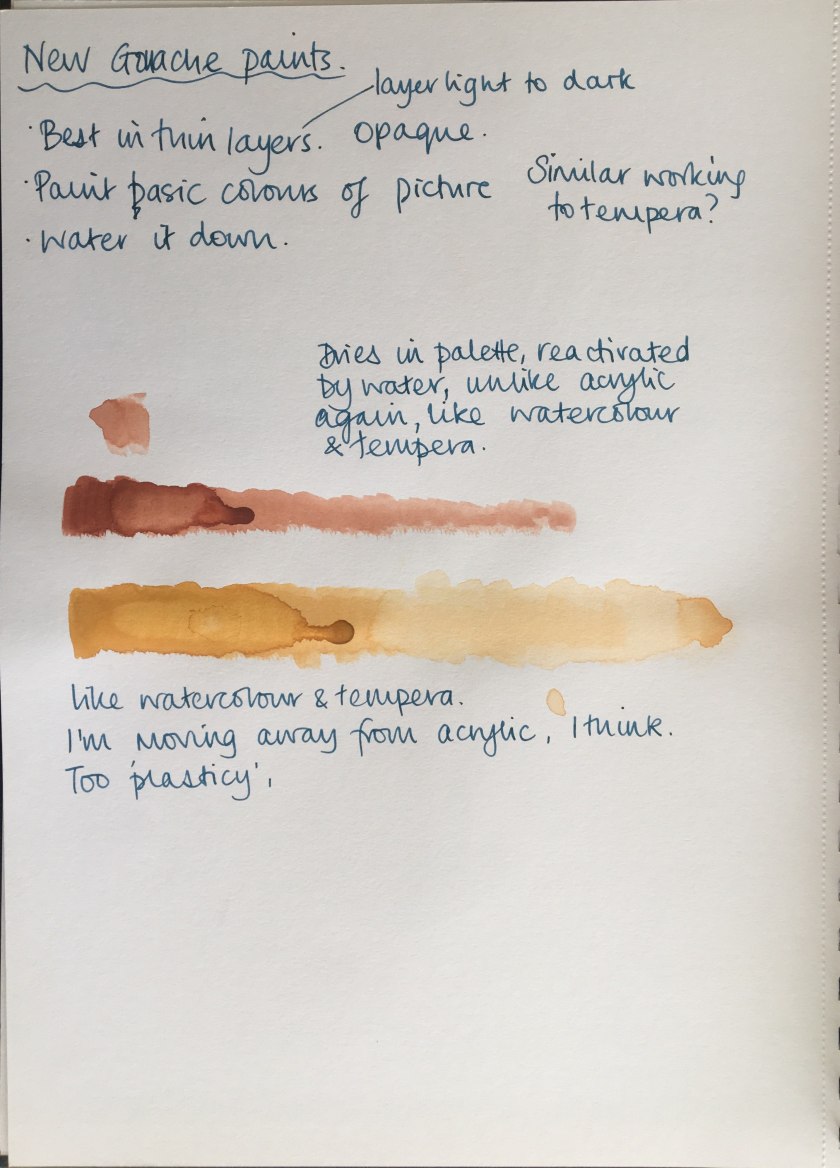 New Gouache paints.
layer light to dark
· Best in thin layers. Opaque.
· Paint basic colours of picture
Similar working
to tempera?
· Water it down.
Dries in palette, reactivated
by water, unlike acrylic
again, like watercolour
& tempera.
like watercolour & tempera.
I'm moving away from acrylic, I think.
Too 'plasticy',